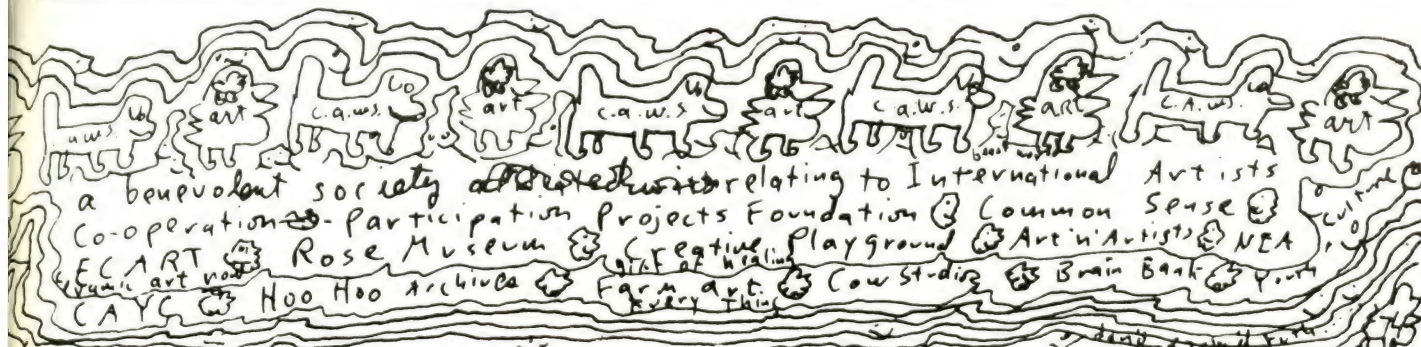 a.w.s. art c.a.w.s. art c.a.w.s art c.a.w.s. art C.A.W.S. art
a benevolent society relating to International Artists
Co-operation - Participation Projects Foundation Common Sense
ECART Rose Museum Creative Playground Art'n'Artists NEA
art now girl of healing
CAYC Hoo Hoo Archives Farm art. Cow Studio Brain Bank Youth
Every Thing
Culture